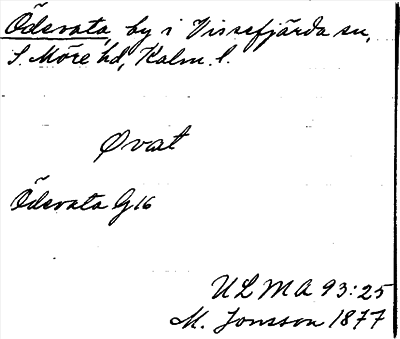 Ödevata, by i Vissefjärda sn,
S. Möre hd, Kalm. l.
Øvat
Ödevata G16
ULMA 93:25
M. Jonsson 1877